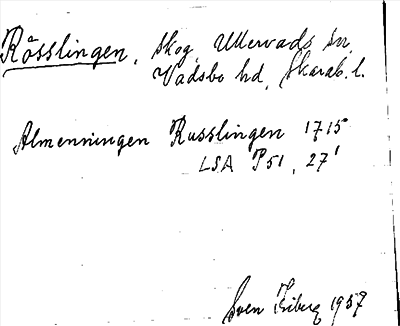 Rösslingen, Skog, Ullervads sn,
Vadsbo hd, Skarab. l.
Almenningen Russlingen 1715
LSA P51, 27'
Sven Friberg 1957